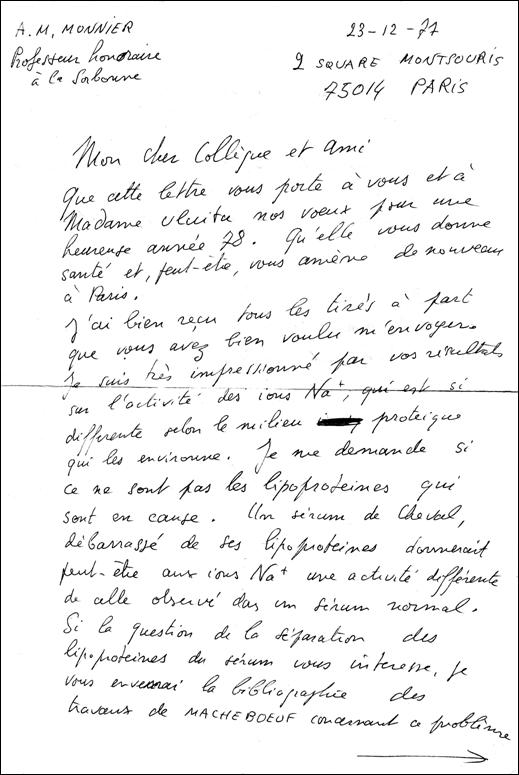 A. M. MONNIER
Professeur honoraire
à la Sorbonne
23-12-77
2 SQUARE MONTSOURIS
75014 PARIS
Mon cher Collègue et ami
Que cette lettre vous porte à vous et à
Madame nos voeux pour une
heureuse année 78. Qu'elle vous donne
santé et, peut-être, vous amène de nouveau
à Paris.
J'ai bien reçu tous les tirés à part
que vous avez bien voulu m'envoyer.
Je suis très impressionné par vos résultats
sur l'activité des ions Na⁺, qui est si
differente selon le milieu proteique
qui les environne. Je me demande si
ce ne sont pas les lipoproteines qui
sont en cause. Un sérum de Cheval,
débarrassé de ses lipoproteines donnerait
peut-être aux ions Na⁺ une activité différente
de celle observé dans un sérum normal.
Si la question de la séparation des
lipoproteines du sérum vous interesse, je
vous enverrai la bibliographie des
travaux de MACHEBOEUF concernant ce problème